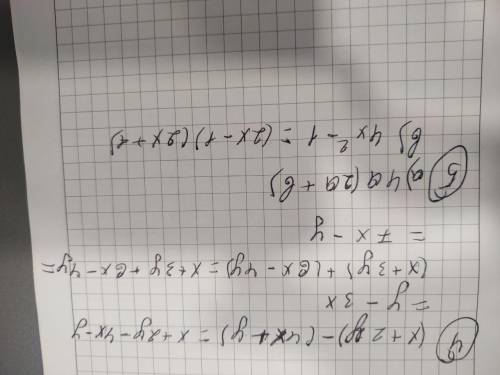 4) (x+2y)-(4x+y)=x+2y-4x-y
=y-3x
(x+3y)+(6x-4y)=x+3y+6x-4y=
=7x-y
5) a) 4a(2a+b)
б) 4x²-1=(2x-1)(2x+1)